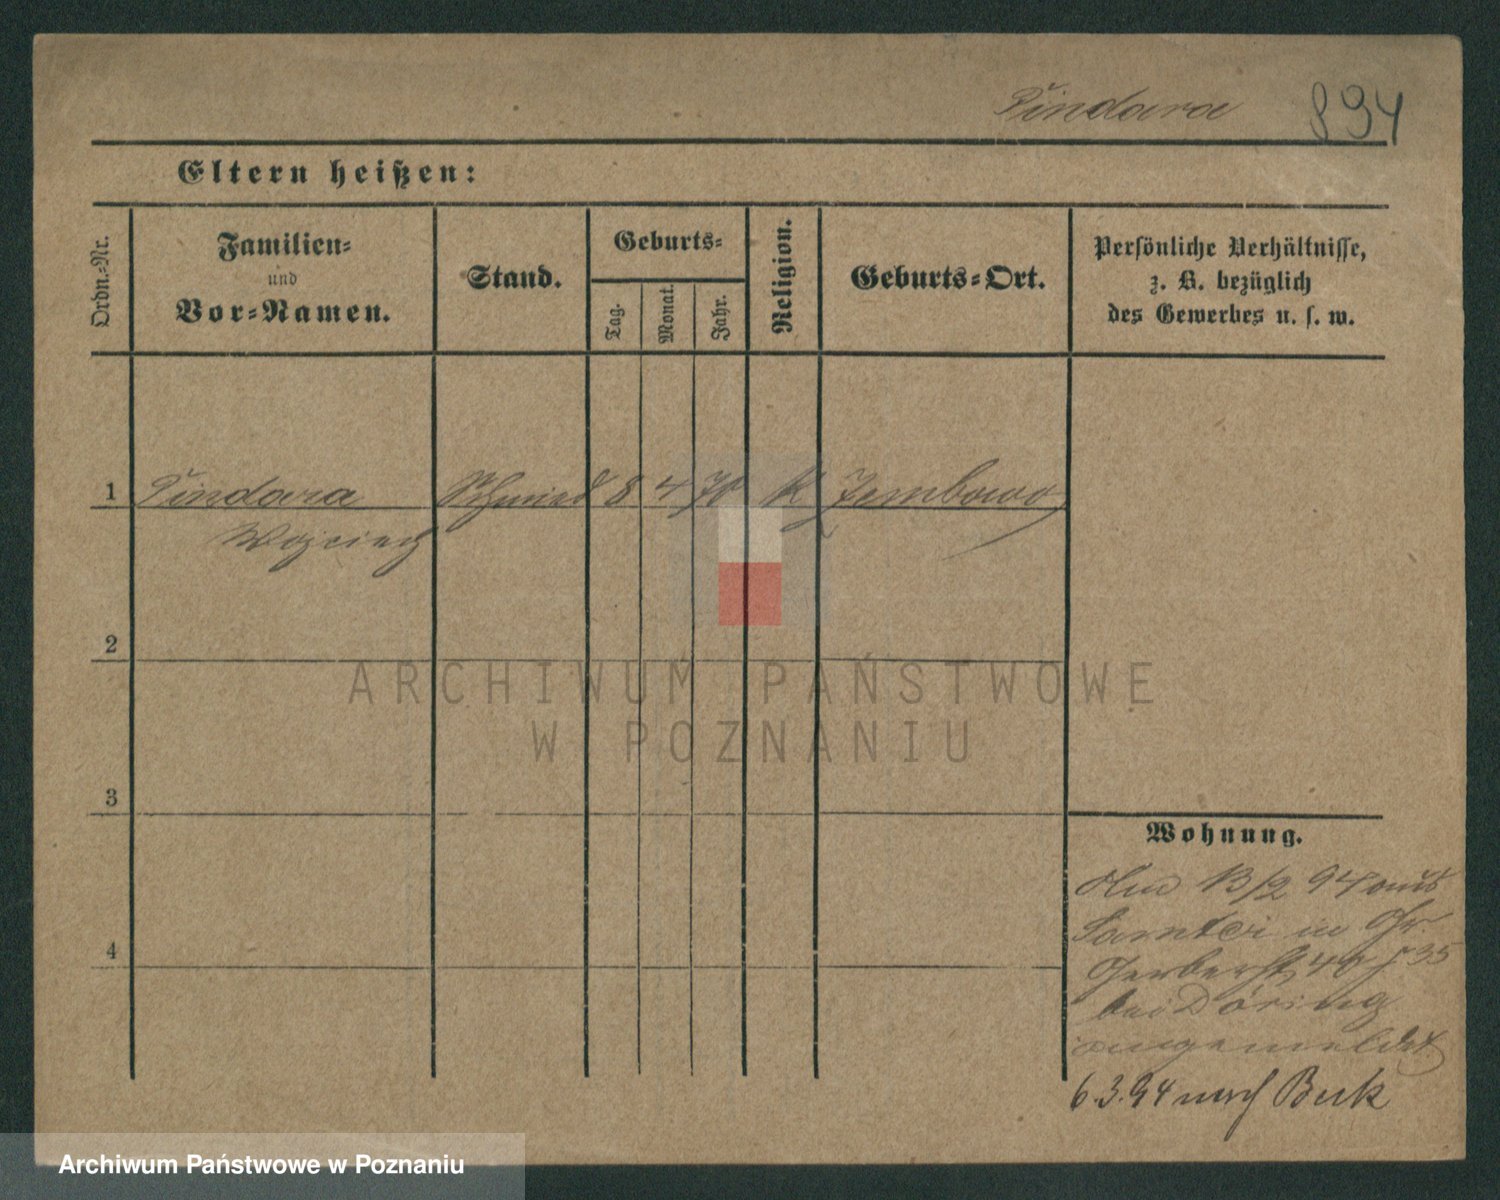 Pindara 894
Eltern heißen:
Ordn.=Nr.
Familien=
und
Vor=Namen.
Stand.
Geburts=
Tag.
Monat.
Jahr.
Religion.
Geburts=Ort.
Persönliche Verhältnisse,
z. B. bezüglich
des Gewerbes u. s. w.
1 Pindara Schmied 8 4 70 K Zembowo
Wojciech
2
3
4
Wohnung.
13/2 94 aus
in Gr.
Gerberstr. 40
bei Döring
angemeldet
6.3.94 nach Buk
ARCHIWUM PAŃSTWOWE
W POZNANIU
Archiwum Państwowe w Poznaniu